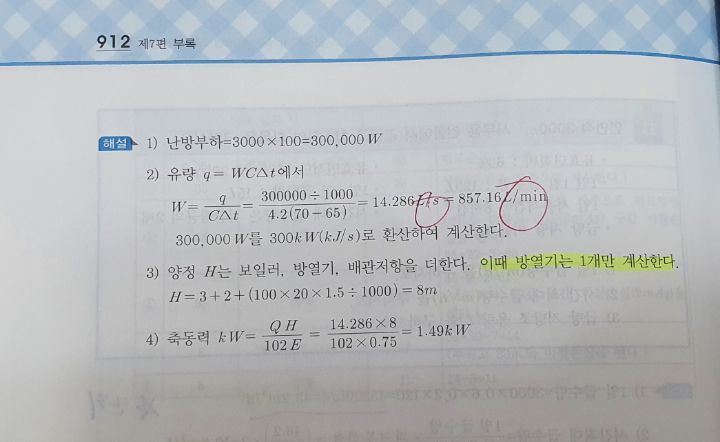 912 제7편 부록
해설 1) 난방부하=3000×100=300,000 W
2) 유량 q= WC△t에서
W= q/C△t = 300000÷1000/4.2(70-65) = 14.286L/s = 857.16L/min
300,000 W를 300kW(kJ/s)로 환산하여 계산한다.
3) 양정 H는 보일러, 방열기, 배관저항을 더한다. 이때 방열기는 1개만 계산한다.
H=3+2+(100×20×1.5÷1000)=8m
4) 축동력 kW= QH/102E = 14.286×8/102×0.75 = 1.49kW